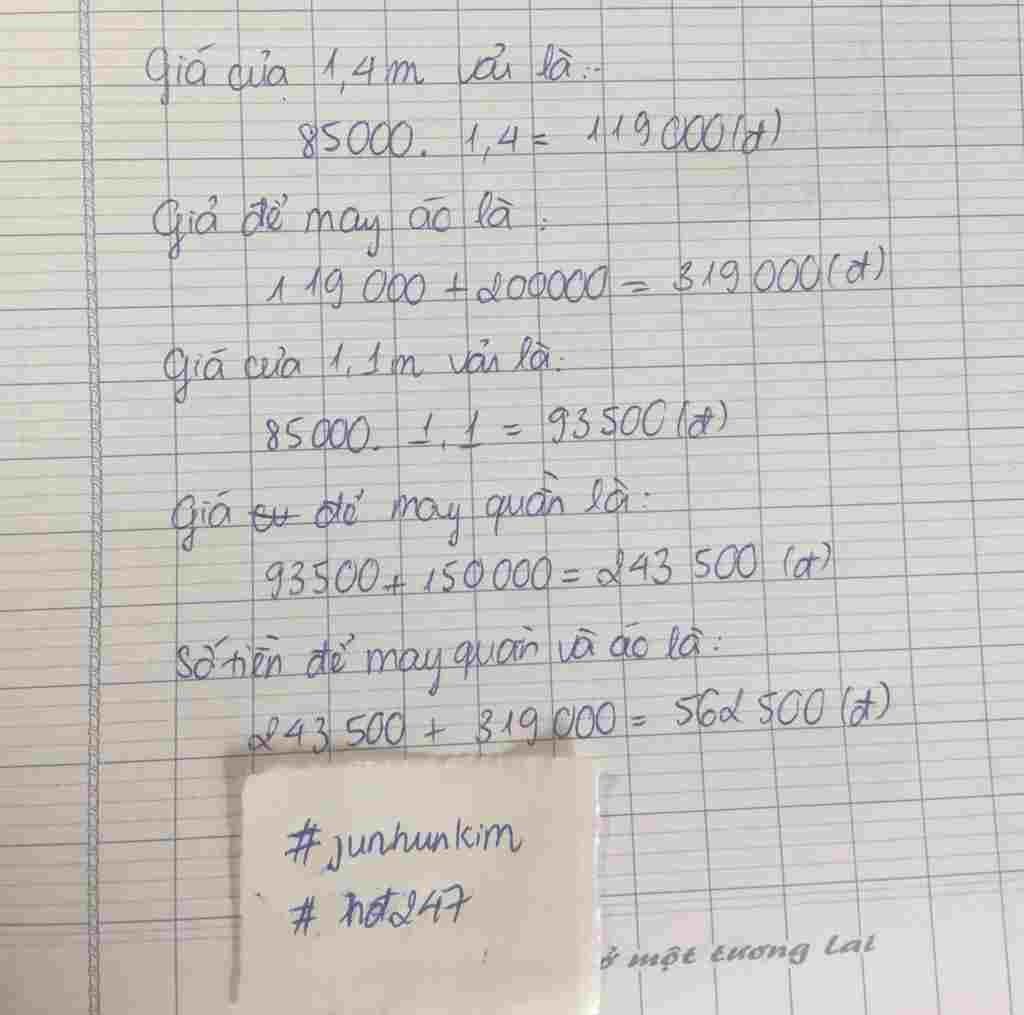 Giá của 1,4m vải là:
85000. 1,4 = 119 000(đ)
Giá để may áo là:
119 000 + 200000 = 319 000(đ)
Giá của 1,1m vải là:
85000. 1,1 = 93 500(đ)
Giá để may quần là:
93500 + 150 000 = 243 500 (đ)
Số tiền để may quần và áo là:
243 500 + 319 000 = 562 500 (đ)
#junhunkim
# hot247
ở một tương lai